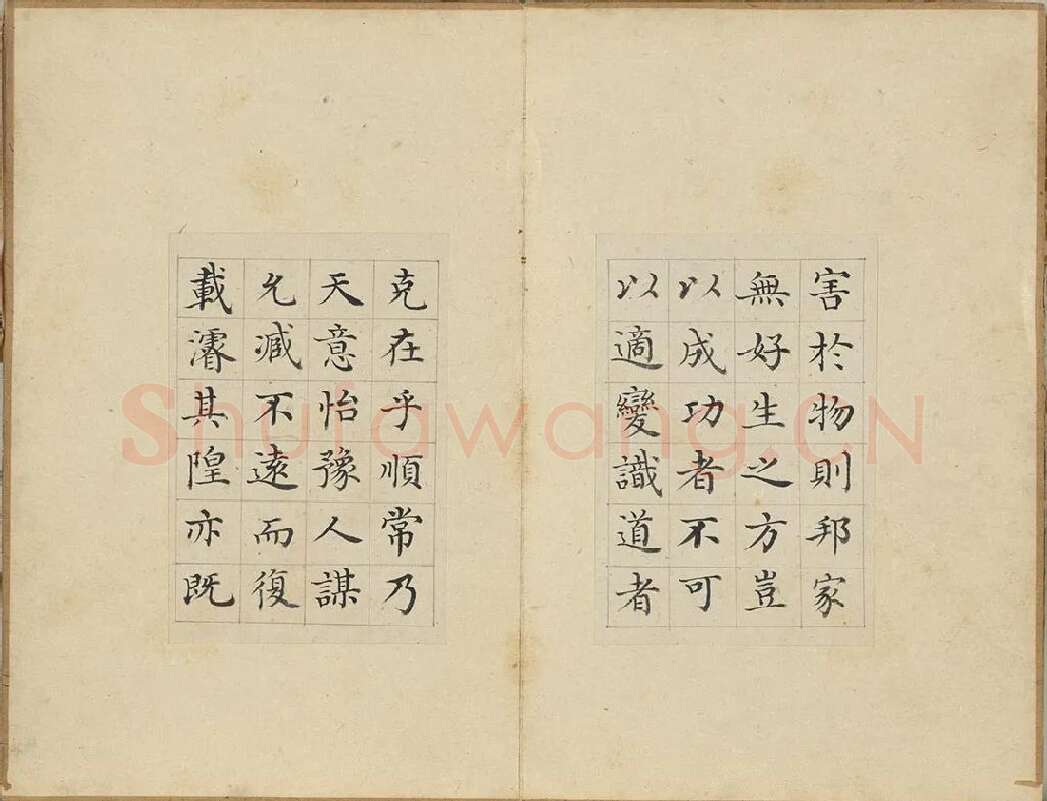 害於物則邦家
無好生之方豈
以成功者不可
以適變識道者
克在乎順常乃
天意怡豫人謀
允臧不遠而復
載濬其隍亦既
Shufawang.CN